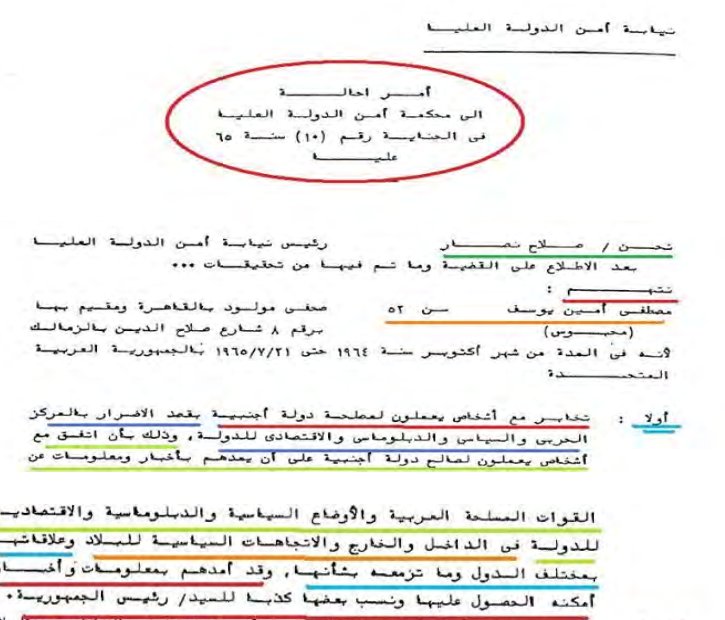 نيابة أمن الدولة العليا
أمر احالة
الى محكمة أمن الدولة العليا
فى الجناية رقم (١٠) سنة ٦٥
عليا
نحن / صلاح نصار رئيس نيابة أمن الدولة العليا
بعد الاطلاع على القضية وما تم فيها من تحقيقات ...
نتهم :
مصطفى أمين يوسف سن ٥٢ صحفى مولود بالقاهرة ومقيم بها
(محبوس) برقم ٨ شارع صلاح الدين بالزمالك
لأنه فى المدة من شهر أكتوبر سنة ١٩٦٤ حتى ١٩٦٥/٧/٢١ بالجمهورية العربية
المتحدة
أولا : تخابر مع أشخاص يعملون لمصلحة دولة أجنبية بقصد الاضرار بالمركز
الحربى والسياسى والدبلوماسى والاقتصادى للدولة، وذلك بأن اتفق مع
أشخاص يعملون لصالح دولة أجنبية على أن يمدهم بأخبار ومعلومات عن
القوات المسلحة العربية والأوضاع السياسية والدبلوماسية والاقتصاديـ
للدولة فى الداخل والخارج والاتجاهات السياسية للبلاد وعلاقاتهـا
بمختلف الدول وما تزمعه بشأنها، وقد أمدهم بمعلومات وأخبـار
أمكنه الحصول عليها ونسب بعضها كذبا للسيد/ رئيس الجمهورية.